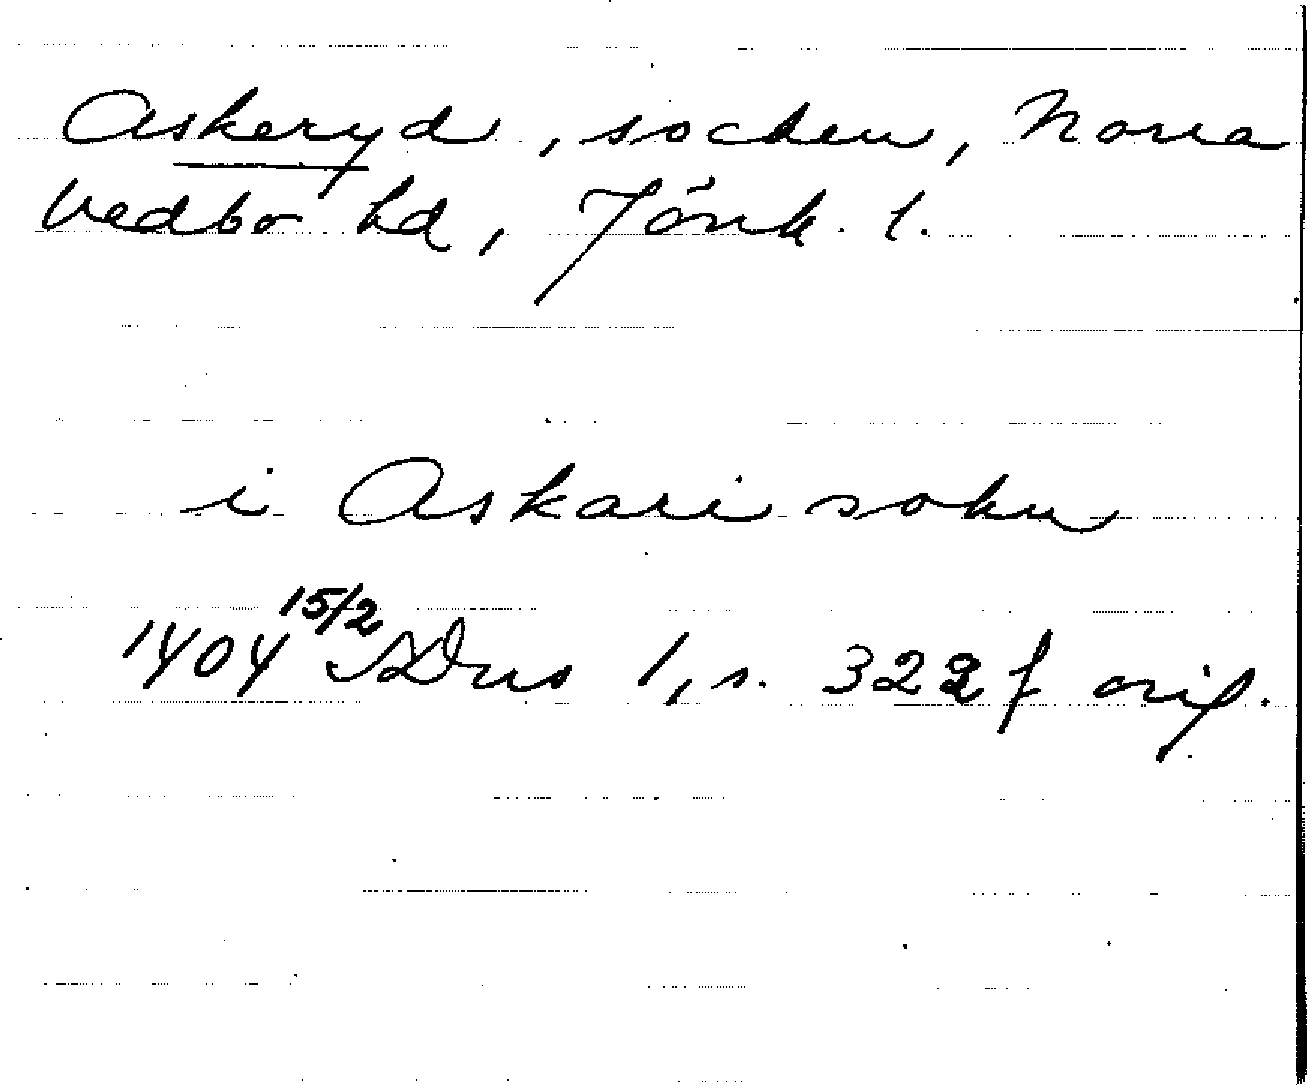 Askeryd, socken, Norra
Vedbo hd, Jönk. l.
i Askari sokn
1404 15/2 SDns 1, s. 322 f orig.